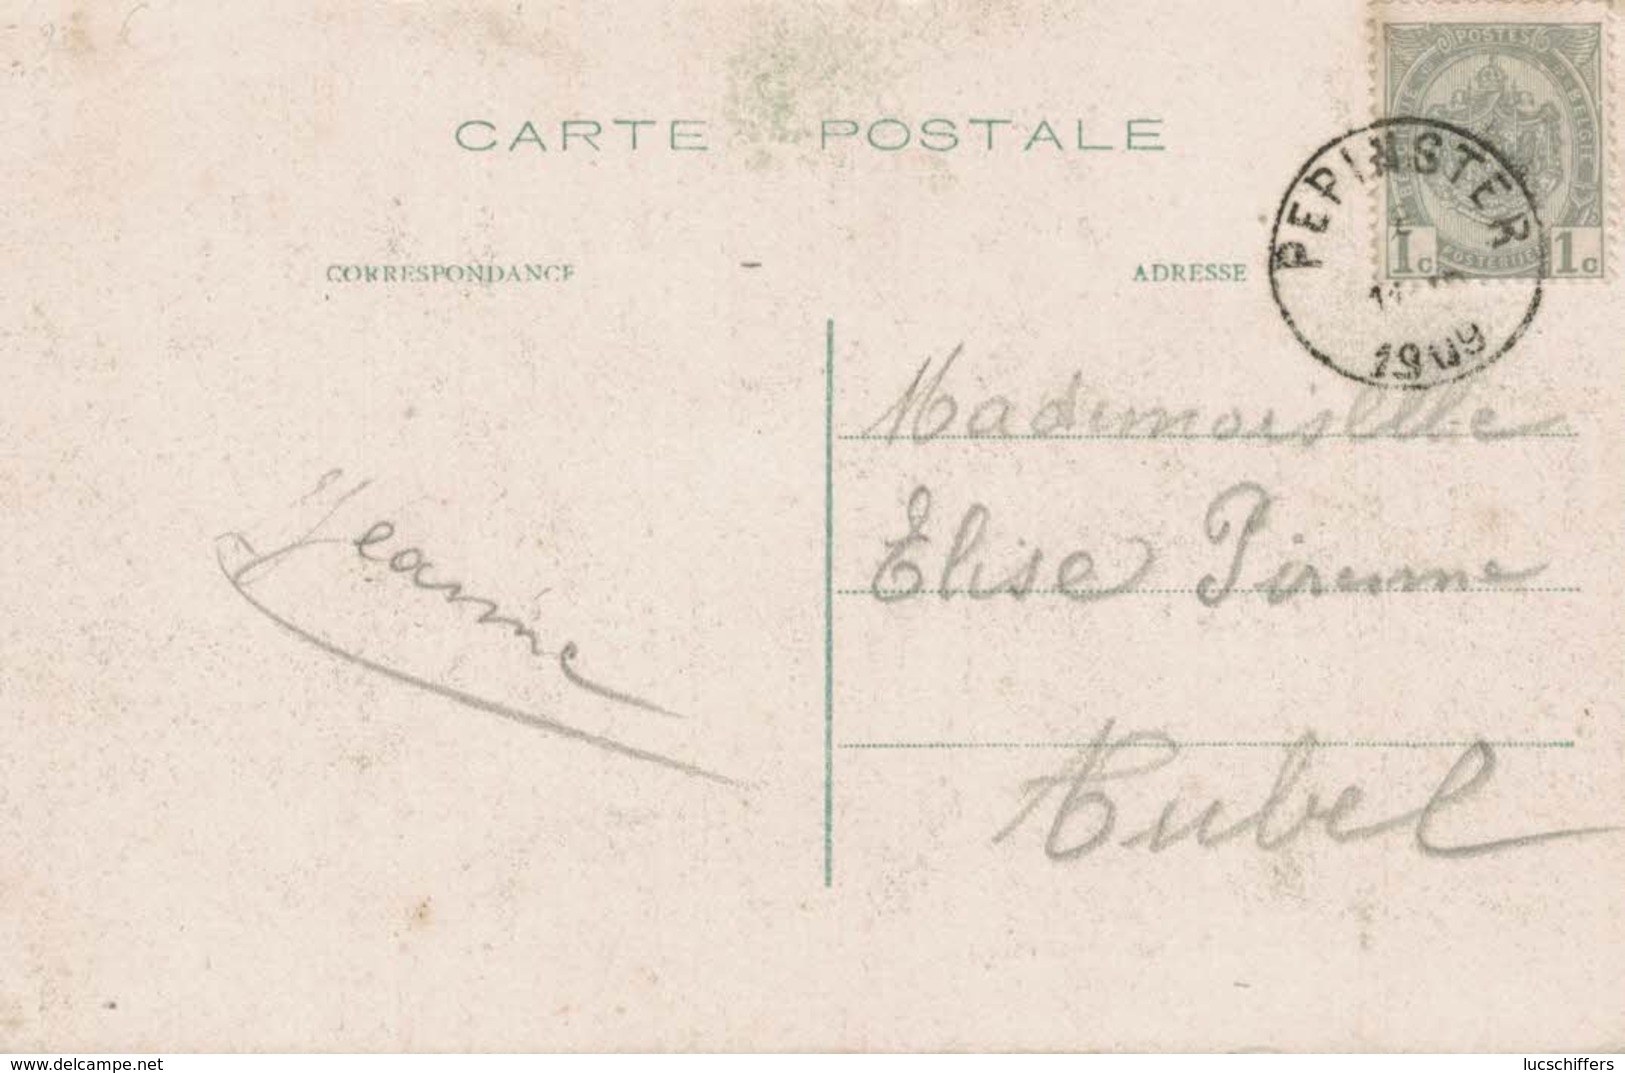 CARTE POSTALE
POSTES
1c 1c
POSTERIJEN
PEPINSTER
1909
CORRESPONDANCE
ADRESSE
Mademoiselle
Elise Pirenne
Aubel
Jeanne
www.delcampe.net
lucschiffers